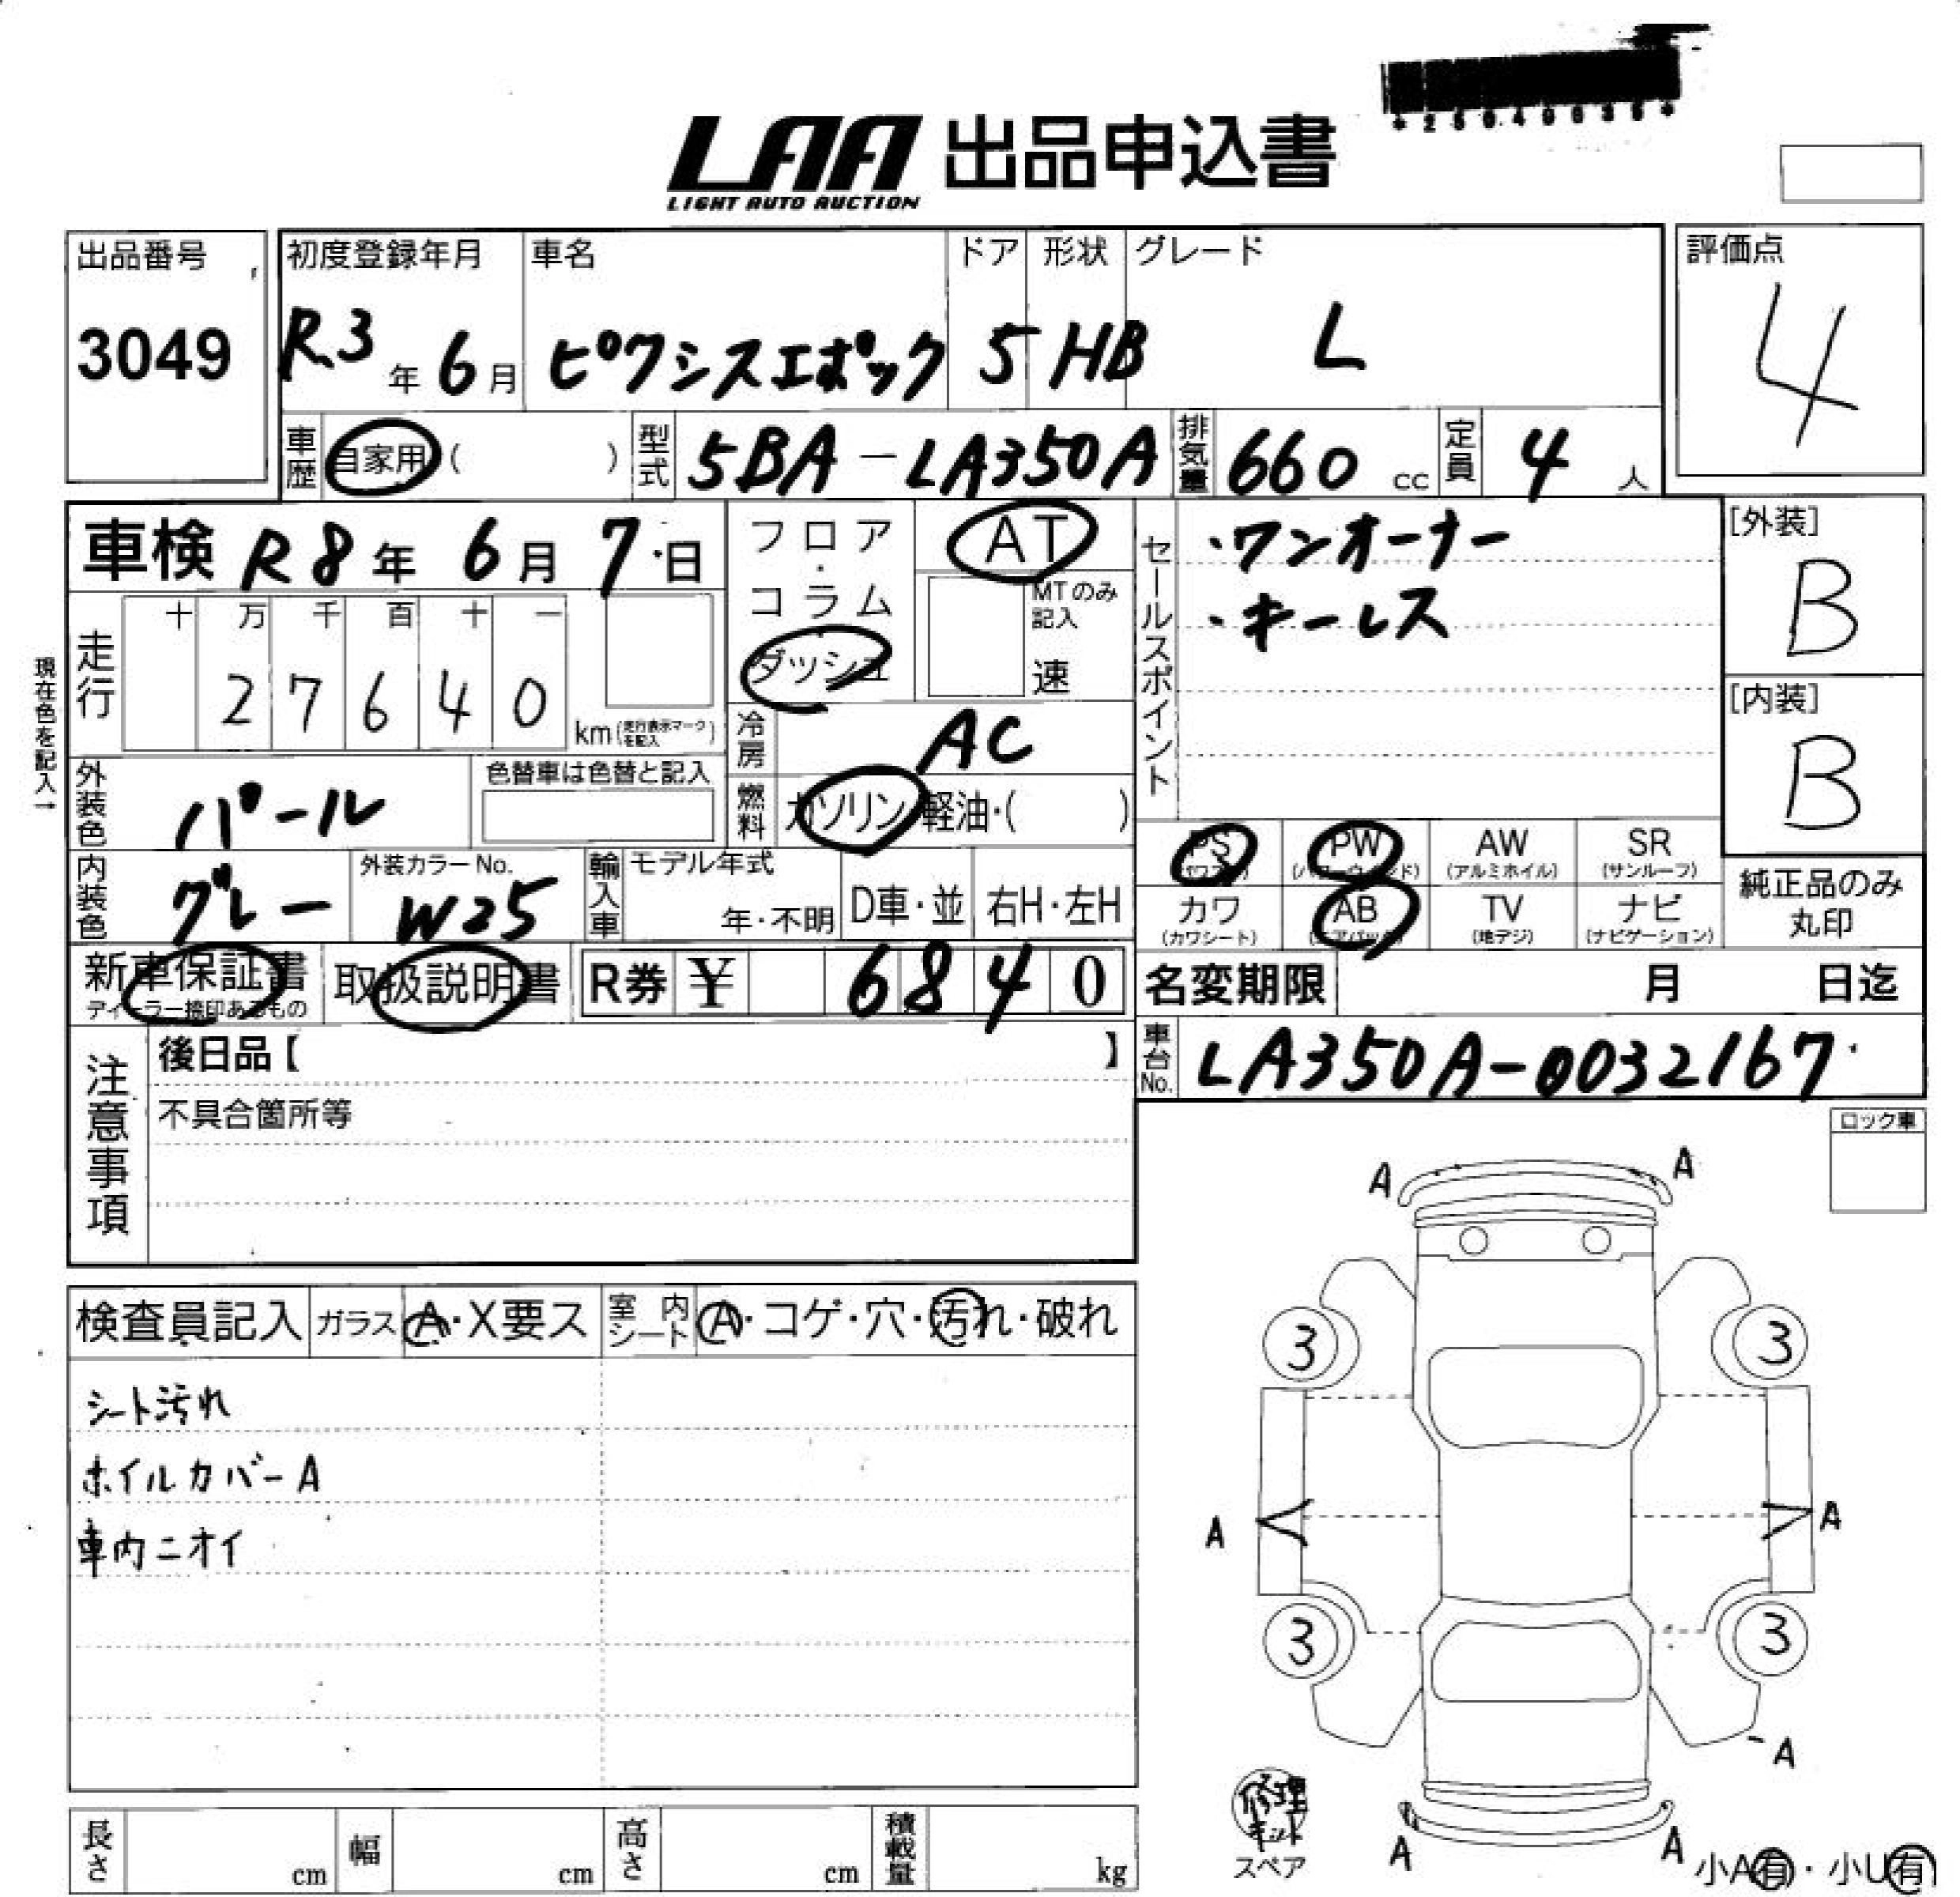 LAA 出品申込書
LIGHT AUTO AUCTION
出品番号
3049
初度登録年月
R.3年6月
車名
ピクシスエポック
ドア
5
形状
HB
グレード
L
評価点
4
車歴
自家用 ( )
型式
5BA-LA350A
排気量
660 cc
定員
4 人
車検 R8年6月7日
フロア・コラム・ダッシュ
AT
MTのみ記入
速
セールスポイント
・ワンオーナー
・キーレス
[外装]
B
[内装]
B
現在色を記入→
走行
十 万 千 百 十 一
2 7 6 4 0
km (走行表示マークを記入)
冷房
AC
外装色
パール
色替車は色替と記入
燃料
ガソリン・軽油・( )
内装色
グレー
外装カラーNo.
W25
輸入車
モデル年式
年・不明
D車・並
右H・左H
PS
PW
AW
(アルミホイル)
SR
(サンルーフ)
カワ
(カワシート)
AB
(エアバッグ)
TV
(地デジ)
ナビ
(ナビゲーション)
純正品のみ
丸印
新車保証書
ディーラー捺印あるもの
取扱説明書
R券 ¥ 6840
名変期限 月 日迄
車台No.
LA350A-0032167
注意事項
後日品【 】
不具合箇所等
ロック車
検査員記入
ガラス A・X要ス
室内シート A・コゲ・穴・汚れ・破れ
シート汚れ
ホイルカバーA
車内ニオイ
A A
3 3
A A
3 3
A
A A
修理キット
スペア
小A有・小U有
長さ cm
幅 cm
高さ cm
積載量 kg